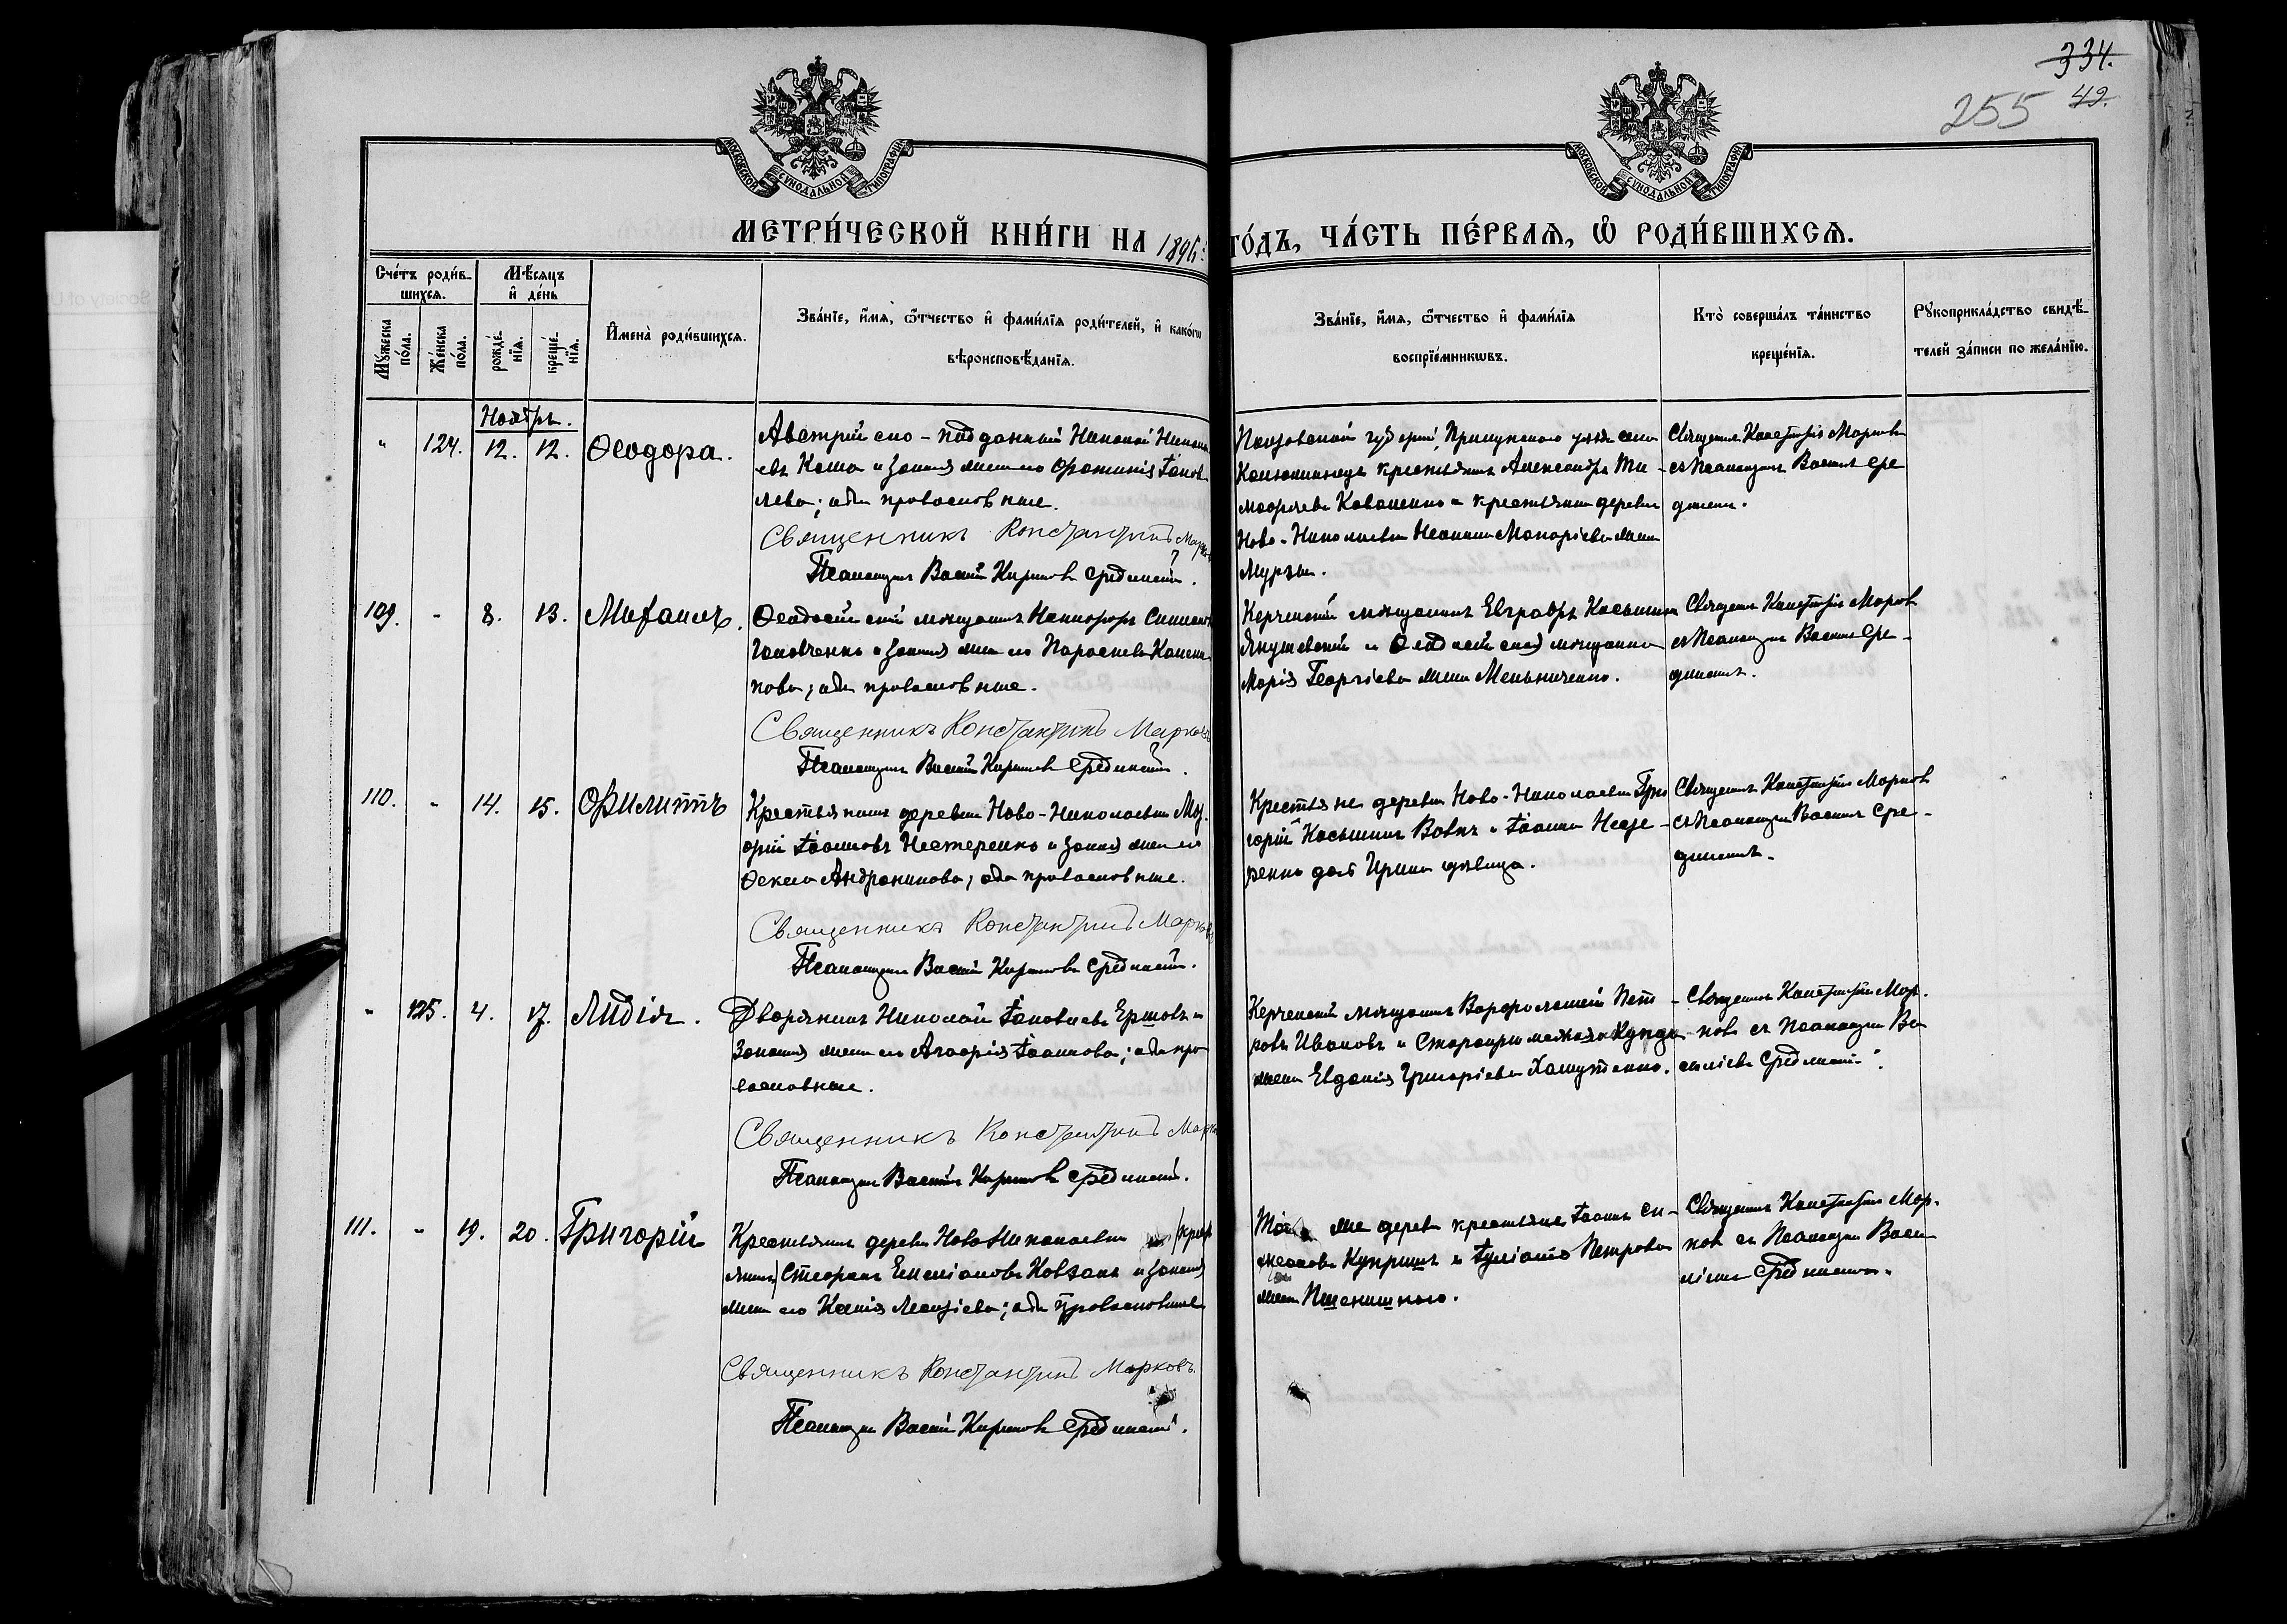 334.
255 49.
МОСКОВСКОЙ СѴНОДАЛЬНОЙ ТИПОГРАФІИ
МОСКОВСКОЙ СѴНОДАЛЬНОЙ ТИПОГРАФІИ
МЕТРИ́ЧЕСКОЙ КНИ́ГИ НА 1896 ГО́ДЪ, ЧА́СТЬ ПЕ́РВАЯ, Ѡ҆ РОДИ́ВШИХСЯ.
Сче́тъ роди́в-
шихся.
Мꙋ́жеска по́ла.
Же́нска по́ла.
Мѣ́сяцъ
и҆ де́нь
рожде́-нїя.
креще́-нїя.
И҆мена̀ роди́вшихся.
Зва́нїе, и҆́мя, ѻ҆́тчество и҆ фами́лїя роди́телей, и҆ како́гѡ
вѣроисповѣ́данїя.
Зва́нїе, и҆́мя, ѻ҆́тчество и҆ фами́лїя
воспрїе́мникѡвъ.
Кто̀ соверша́лъ та́инство
креще́нїя.
Рꙋкоприкла́дство свидѣ́-
телей за́писи по жела́нїю.
Ноябрь.
" 124. 12. 12. Ѳеодора.
Австрійско-подданный Николай Никола
евъ Коша и законная жена его Фотинія Іаков
лева; оба православные.
Священникъ Константинъ Марковъ
Псаломщикъ Василій Кириловъ Срединскій.
Полтавской губерніи, Прилукскаго уѣзда села
крестьянинъ Александръ Ти-
моѳеевъ Коваленко и крестьянка деревни
Ново-Николаевки Макаріева жена
Мурза.
Священникъ Константинъ Марковъ
съ Псаломщикомъ Василіемъ Сре
динскимъ.
109. - 8. 13. Михаилъ.
Ѳеодосійскій мѣщанинъ Никифоръ
Головченко и законная жена его Параскева
нова; оба православные.
Священникъ Константинъ Марковъ
Псаломщикъ Василій Кириловъ Срединскій.
Керченскій мѣщанинъ Евграфъ Касьяновъ
Янушевскій и Ѳеодосійская мѣщанка
Марія Георгіева жена Мельниченко.
Священникъ Константинъ Марковъ
съ Псаломщикомъ Василіемъ Сре-
динскимъ.
110. - 14. 15. Филиппъ
Крестьянинъ деревни Ново-Николаевки
Іоанновъ Нестеренко и законная жена его
Ѳекла Андроникова; оба православные.
Священникъ Константинъ Марковъ
Псаломщикъ Василій Кириловъ Срединскій.
Крестьяне деревни Ново-Николаевки Гри
горій Касьяновъ Вовкъ и Іоанна
ренко дочь Ирина дѣвица.
Священникъ Константинъ Марковъ
съ Псаломщикомъ Василіемъ Сре-
динскимъ.
" 125. 4. 17. Лидія.
Дворянинъ Николай Іаковлевъ Ершовъ и
законная жена его Глафира Іоаннова; оба пра
вославные.
Священникъ Константинъ Марковъ
Псаломщикъ Василій Кириловъ Срединскій.
Керченскій мѣщанинъ Варфоломей Пет-
ровъ Ивановъ и
жена Евдокія Григоріева
Священникъ Константинъ Мар-
ковъ съ Псаломщикомъ Ва
силіемъ Срединскимъ.
111. - 19. 20. Григорій
Крестьянинъ деревни Ново Николаевки (кресть
янинъ) Стефанъ Емиліановъ Ковзанъ и законная
жена его Ксенія; оба православные
Священникъ Константинъ Марковъ.
Псаломщикъ Василій Кириловъ Срединскій.
Той же деревни крестьяне Іоаннъ Си-
меоновъ Купринъ и Іуліанія Петрова
жена Пшенишнаго.
Священникъ Константинъ Мар-
ковъ съ Псаломщикомъ Васи
ліемъ Срединскимъ.